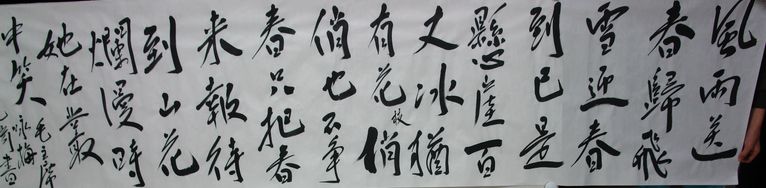 風雨送
春歸飛
雪迎春
到已是
懸崖百
丈冰猶
有花枝俏
俏也不爭
春只把春
来報待
到山花
爛漫時
她在叢
中笑
毛主席
詠梅
書